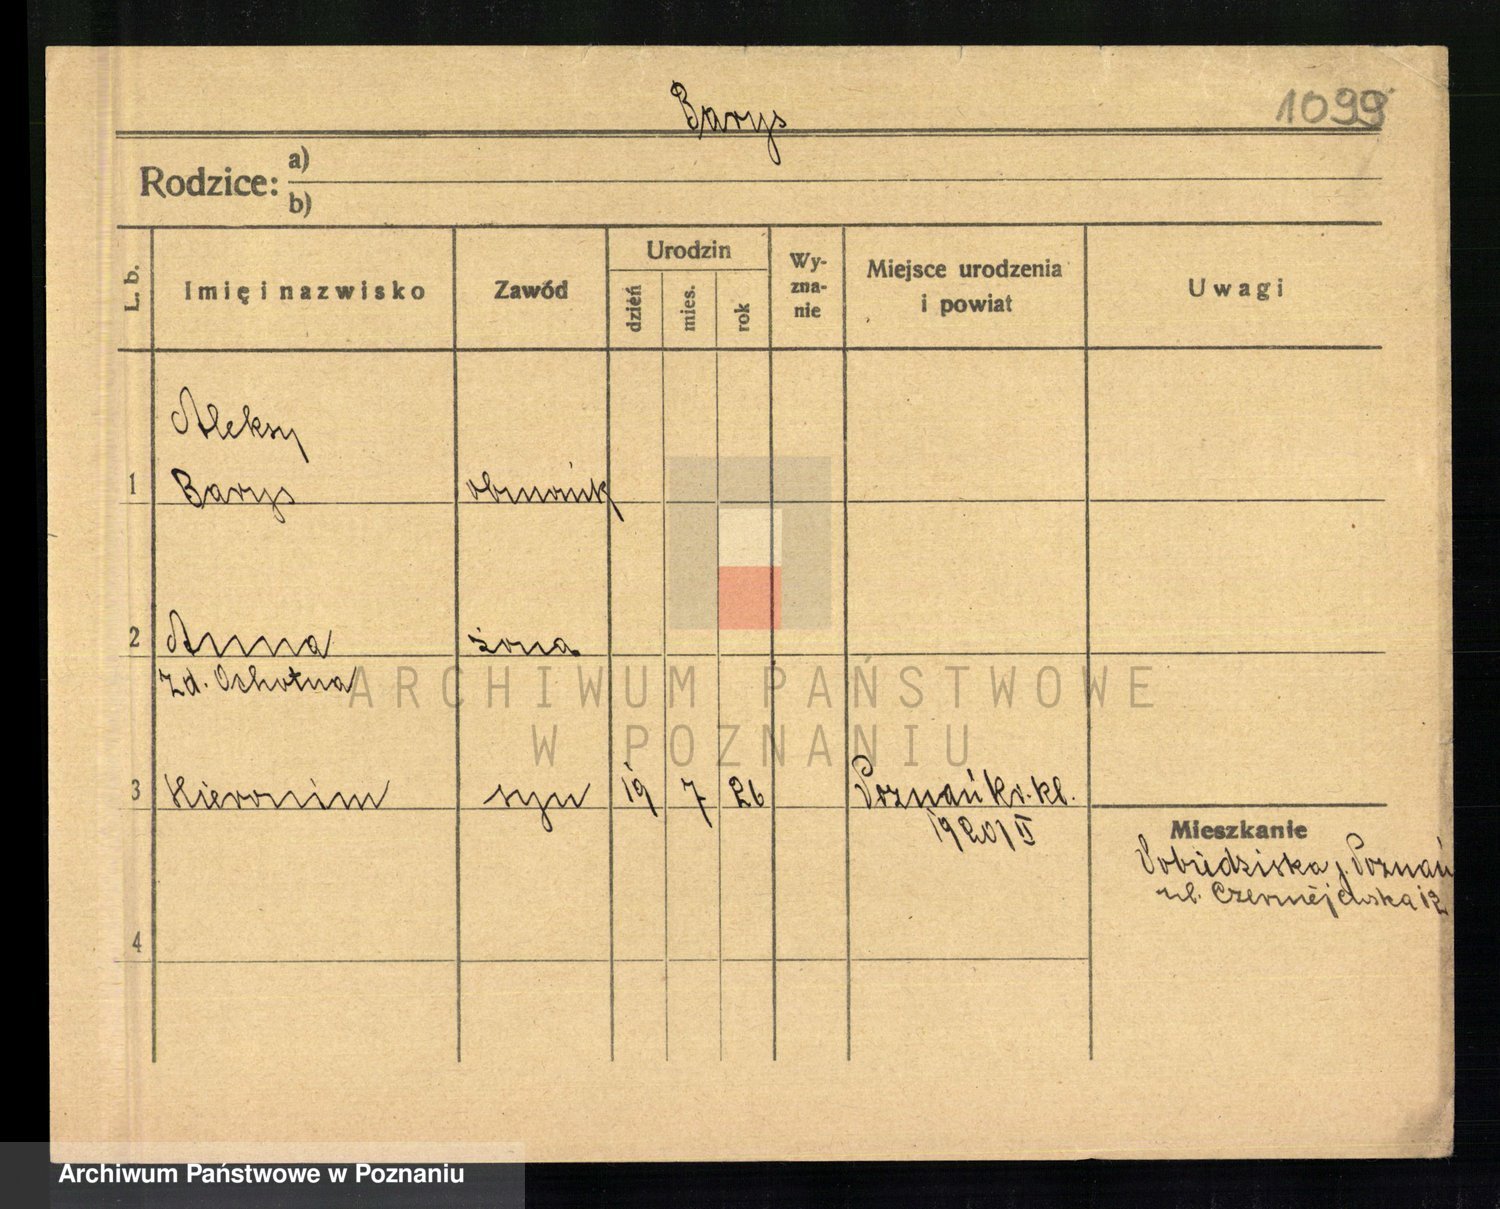 Barys
1099
Rodzice: a)
b)
L. b.
Imię i nazwisko
Zawód
Urodzin
dzień
mies.
rok
Wy-
zna-
nie
Miejsce urodzenia
i powiat
Uwagi
Aleksy
1 Barys
2 Anna żona
zd. Ochotna
3 Hieronim syn 19 7 26 Poznań kr. kl.
1920/II
Mieszkanie
Pobiedziska p. Poznań
ul. Czerniejewska 12
4
ARCHIWUM PAŃSTWOWE
W POZNANIU
Archiwum Państwowe w Poznaniu